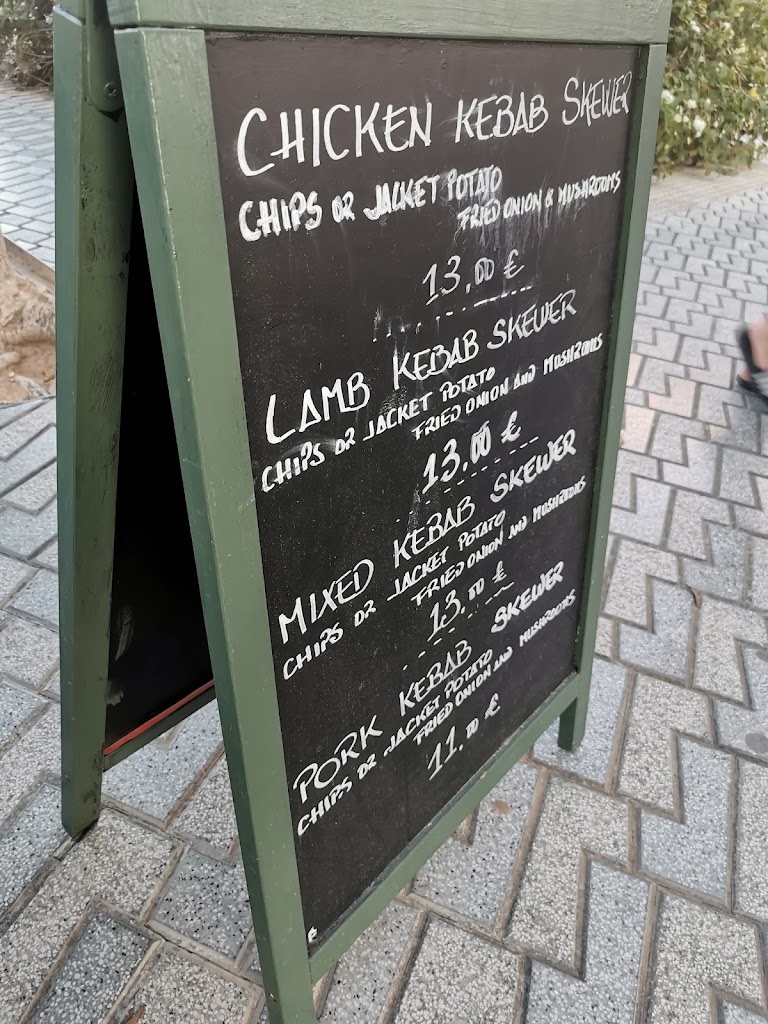 CHICKEN KEBAB SKEWER
CHIPS OR JACKET POTATO
FRIED ONION & MUSHROOMS
13,00 €
LAMB KEBAB SKEWER
CHIPS OR JACKET POTATO
FRIED ONION AND MUSHROOMS
13.00 €
MIXED KEBAB SKEWER
CHIPS OR JACKET POTATO
FRIED ONION AND MUSHROOMS
13.00 €
PORK KEBAB SKEWER
CHIPS OR JACKET POTATO
FRIED ONION AND MUSHROOMS
11.00 €